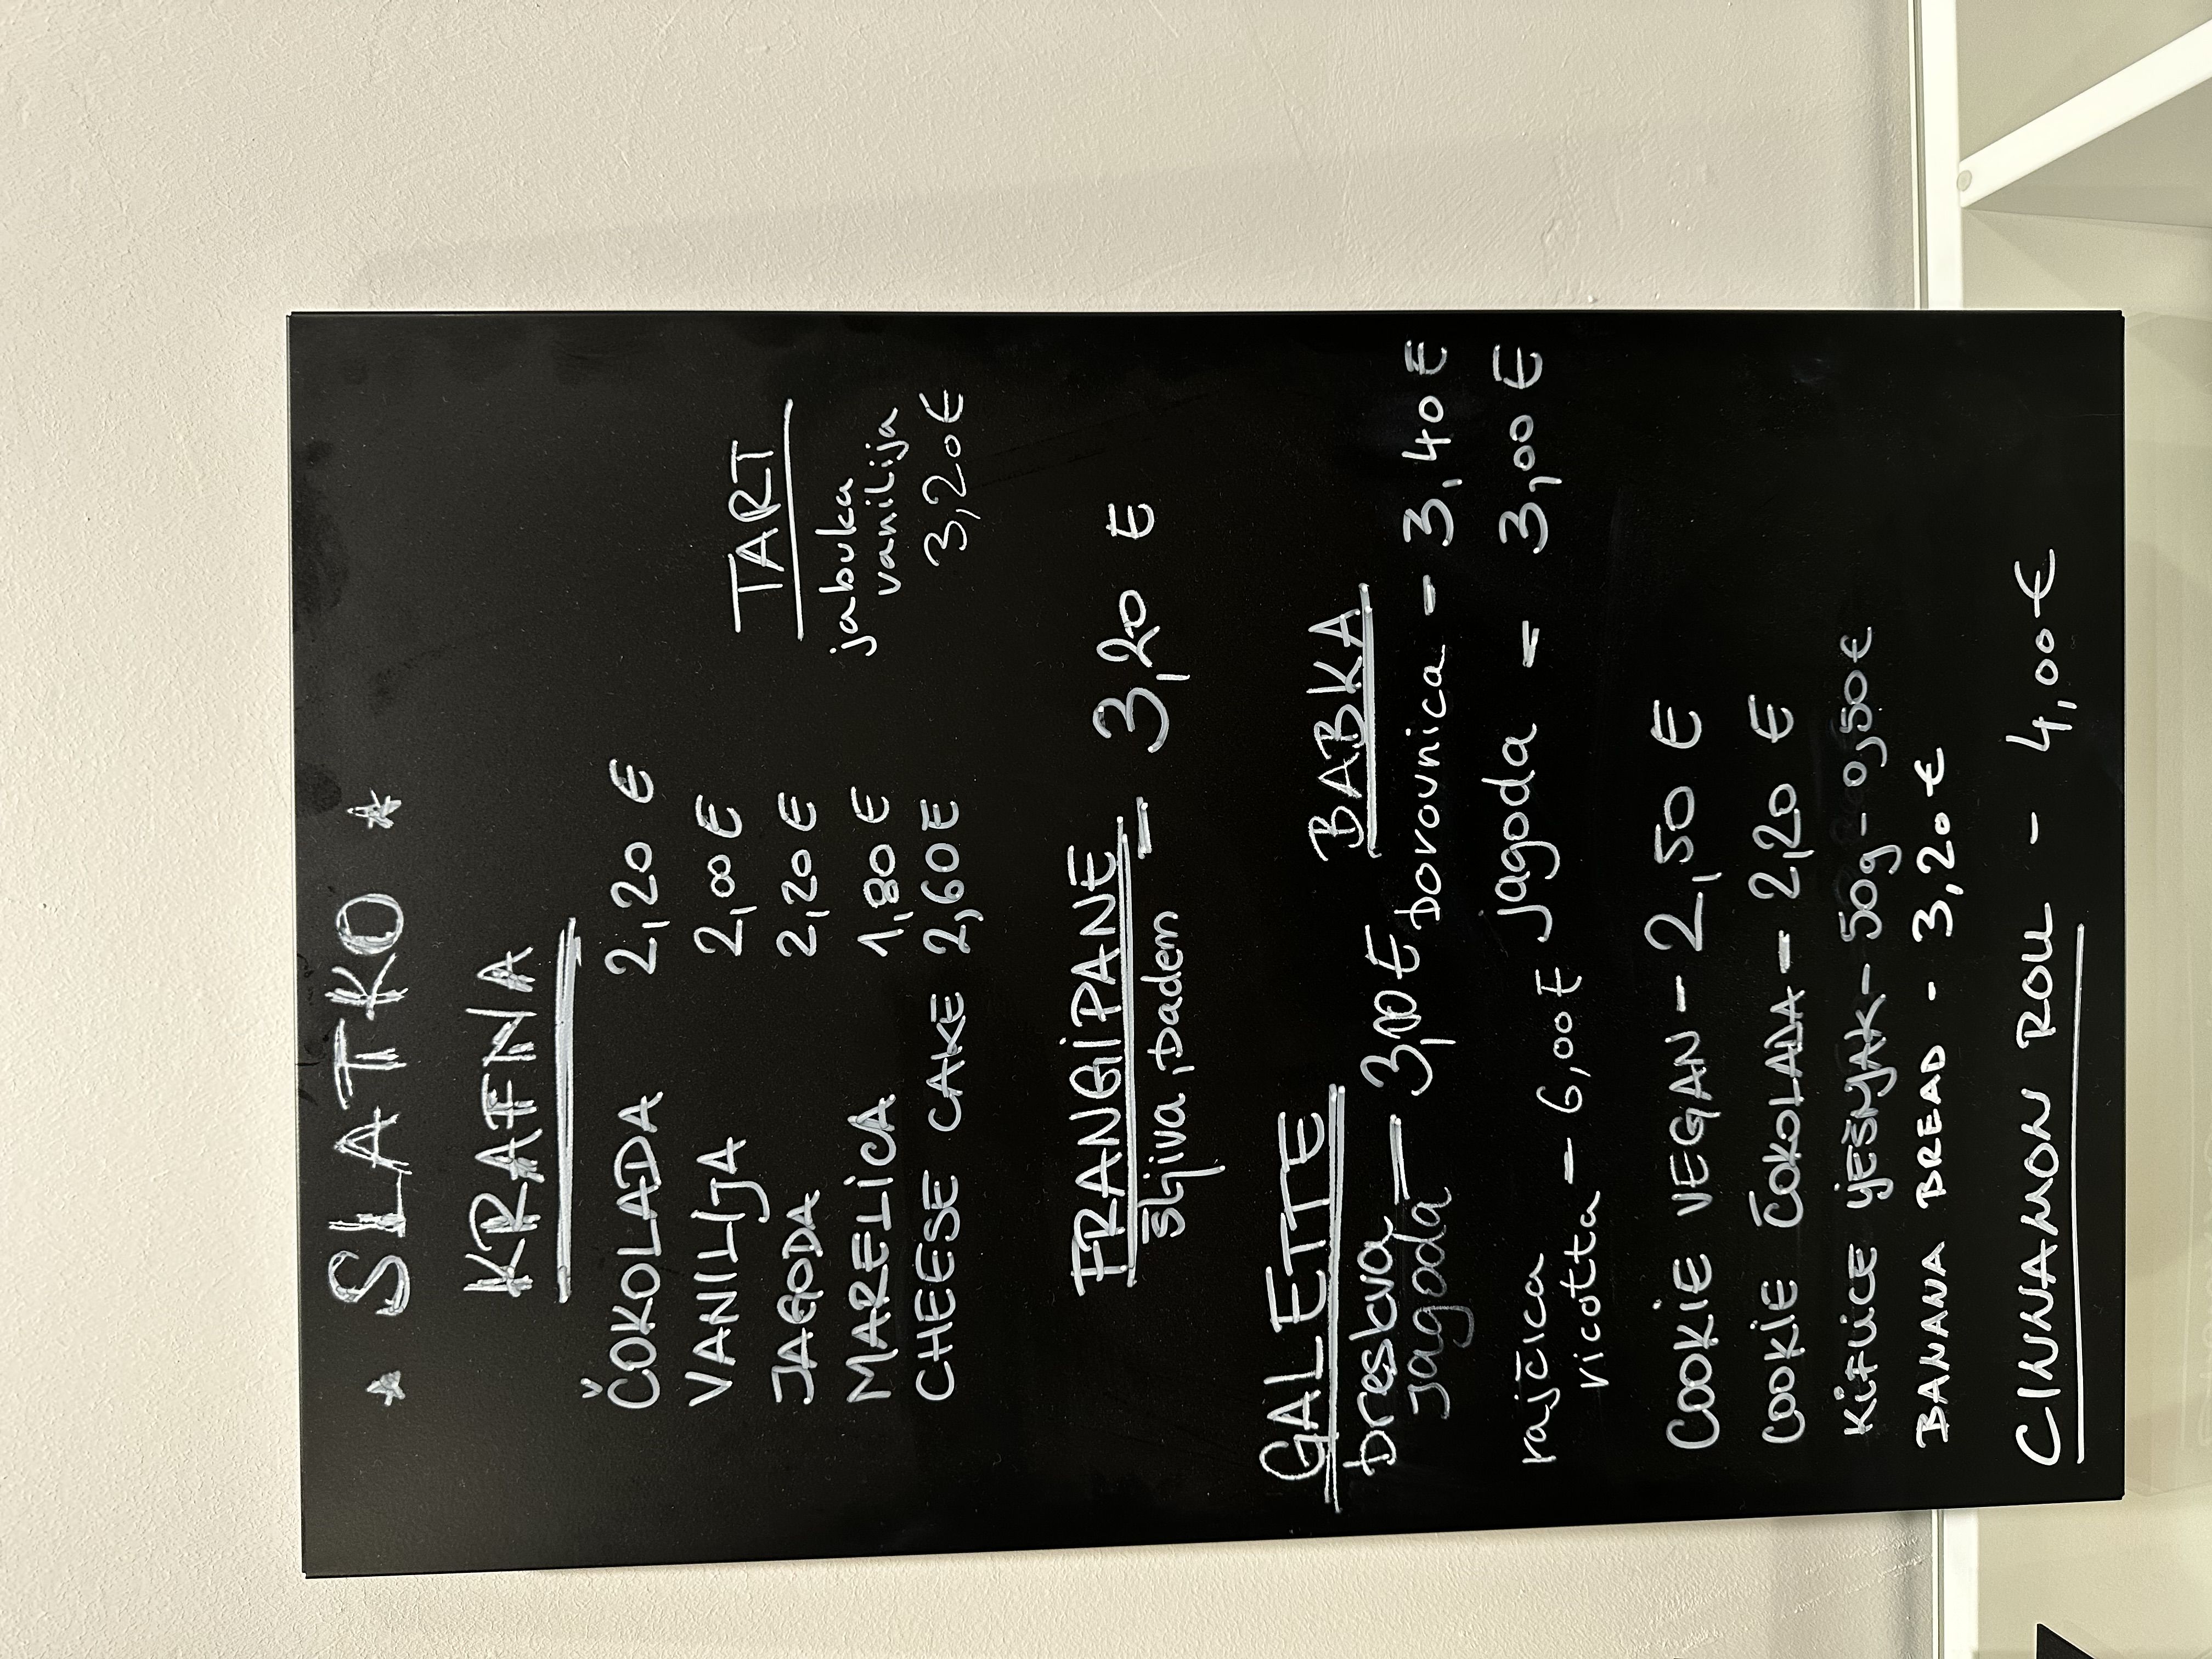 ★ SLATKO ★
KRAFNA
ČOKOLADA 2,20 €
VANILIJA 2,00 €
JAGODA 2,20 €
MARELICA 1,80 €
CHEESE CAKE 2,60 €
TART
jabuka
vanilija
3,20 €
FRANGIPANE - 3,20 €
šljiva, badem
GALETTE
breskva
Jagoda - 3,00 €
rajčica
ricotta - 6,00 €
BABKA
borovnica - 3,40 €
jagoda = 3,00 €
COOKIE VEGAN - 2,50 €
COOKIE ČOKOLADA - 2,20 €
KIFLICE LJEŠNJAK - 50g - 0,50 €
BANANA BREAD - 3,20 €
CINNAMON ROLL - 4,00 €